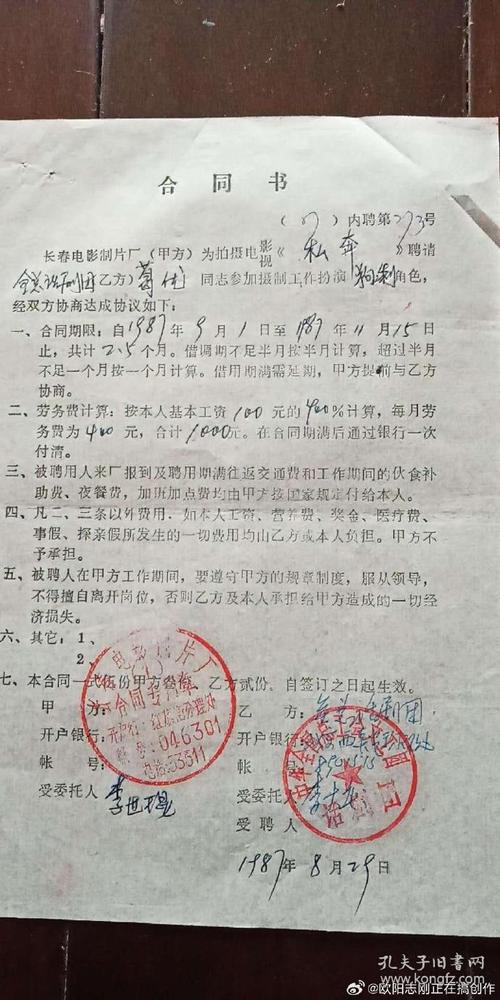 合同书
(87)内聘第273号
长春电影制片厂（甲方）为拍摄电影视《私奔》聘请
全总话剧团(乙方)葛优同志参加摄制工作扮演角色，
经双方协商达成协议如下：
一、合同期限：自1987年9月1日至1987年11月15日
止，共计2.5个月。借调期不足半月按半月计算，超过半月
不足一个月按一个月计算。借用期满需延期，甲方提前与乙方
协商。
二、劳务费计算：按本人基本工资100元的400%计算，每月劳
务费为400元，合计1000元。在合同期满后通过银行一次
付清。
三、被聘用人来厂报到及聘用期满往返交通费和工作期间的伙食补
助费、夜餐费，加班加点费均由甲方按国家规定付给本人。
四、凡二、三条以外费用，如本人工资、营养费、奖金、医疗费、
事假、探亲假所发生的一切费用均由乙方或本人负担。甲方不
予承担。
五、被聘人在甲方工作期间，要遵守甲方的规章制度，服从领导，
不得擅自离开岗位，否则乙方及本人承担给甲方造成的一切经
济损失。
六、其它：1、
2、
七、本合同一式伍份甲方叁份，乙方贰份。自签订之日起生效。
甲方：
开户银行：
帐号：
受委托人 李世
电影制片厂
合同专用章
开户行：红旗街办理处
帐号：046301
电话：53311
乙方：全总话剧团
开户银行：
帐号：
受委托人
受聘人
话剧团
1987年8月29日
孔夫子旧书网
www.kongfz.com
@欧阳志刚正在搞创作